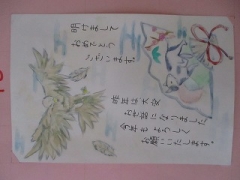 明けまして
おめでとう
ございます。
昨年は大変
お世話になりました
今年もよろしく
お願いいたします。